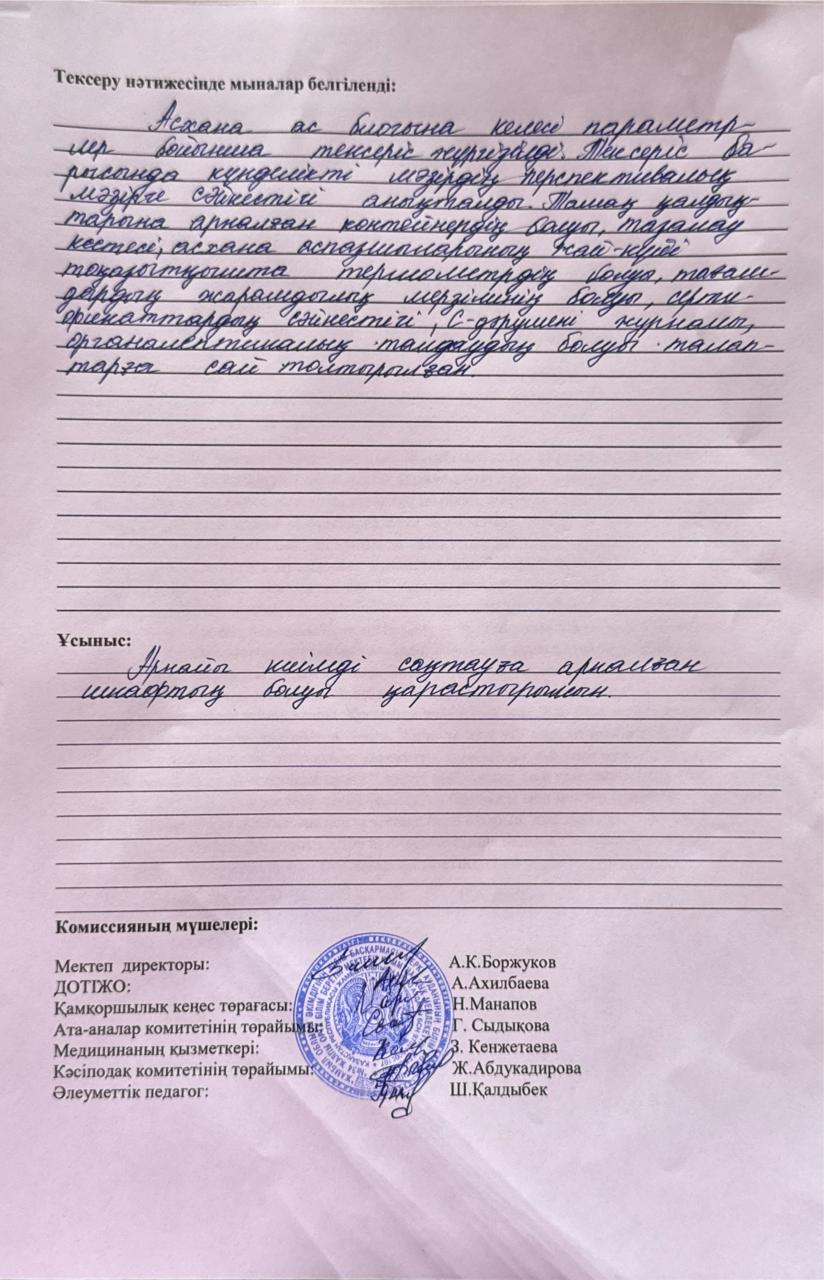 Тексеру нәтижесінде мыналар белгіленді:
Асхана ас блогына келесі параметр-
лер бойынша тексеріс жүргізілді. Тексеріс ба-
рысында күнделікті мәзірдің перспективалық
мәзірге сәйкестігі анықталды. Тамақ қалдық-
тарына арналған контейнердің болуы, тазалау
кестесі, асхана аспазшыларының жай-күйі
тоңазытқышта термометрдің болуы, тағам-
дардың жарамдылық мерзімінің болуы, серти-
фикаттардың сәйкестігі, С-дәрумені журналы,
органалептикалық талдаудың болуы талап-
тарға сай толтырылған.
Ұсыныс:
Арнайы киімді сақтауға арналған
шкафтың болуы қарастырылсын.
Комиссияның мүшелері:
Мектеп директоры: А.К.Боржуков
ДОТІЖО: А.Ахилбаева
Қамқоршылық кеңес төрағасы: Н.Манапов
Ата-аналар комитетінің төрайымы: Г. Сыдықова
Медицинаның қызметкері: З. Кенжетаева
Кәсіподақ комитетінің төрайымы: Ж.Абдукадирова
Әлеуметтік педагог: Ш.Қалдыбек